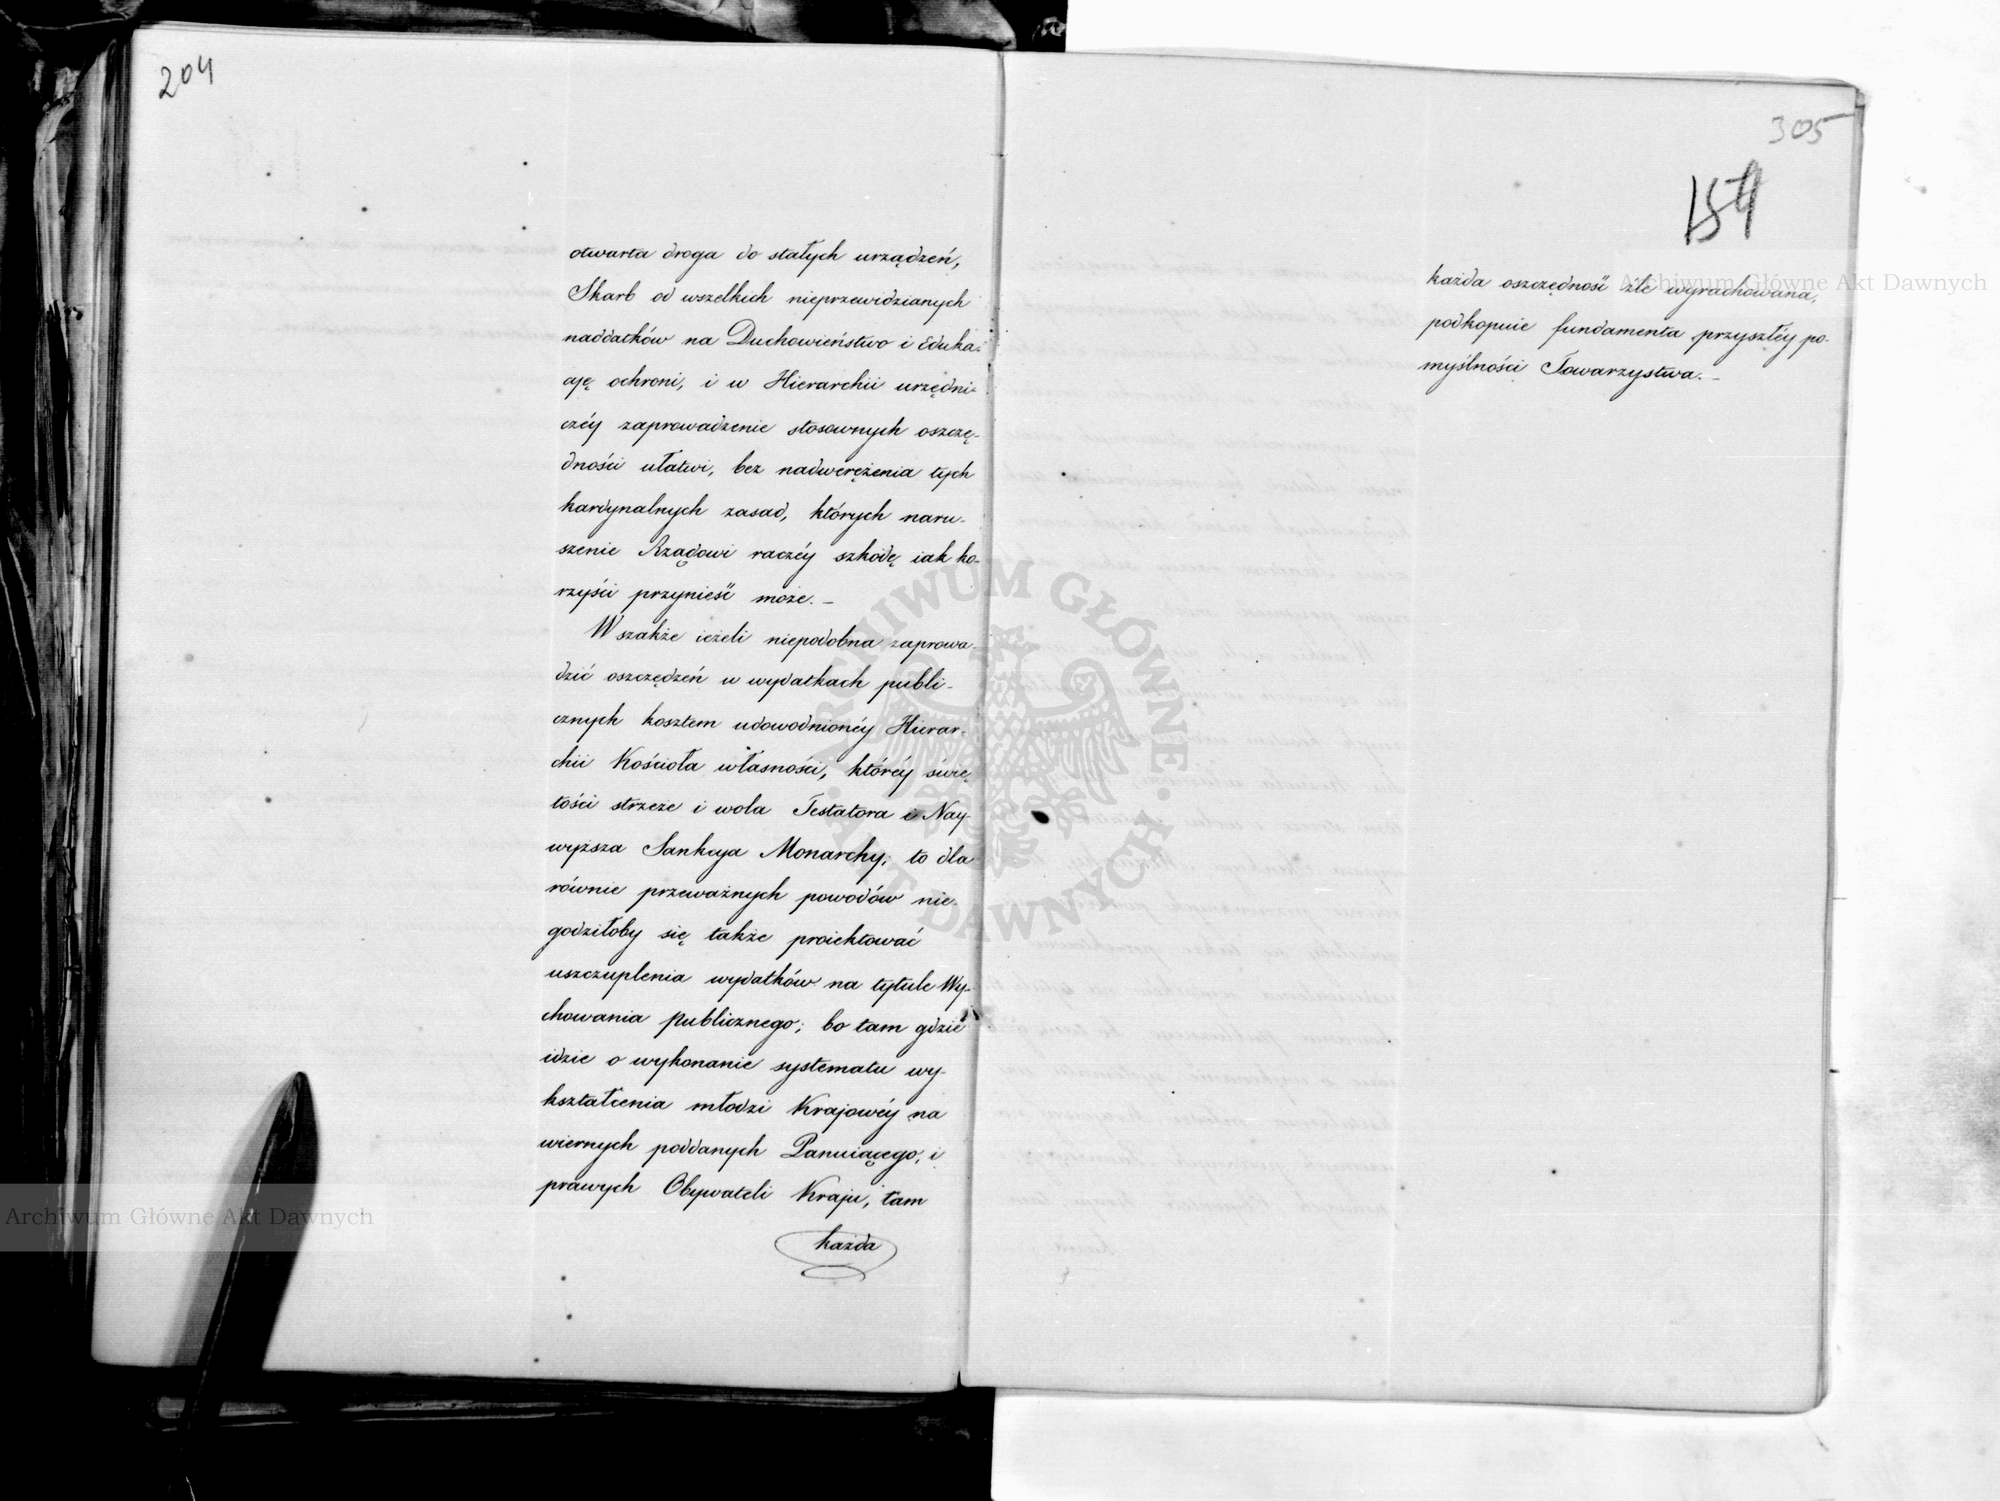 204
otwarta droga do stałych urządzeń,
Skarb od wszelkich nieprzewidzianych
naddatków na Duchowieństwo i Eduka-
cję ochroni, i w Hierarchii urzędni-
czéy zaprowadzenie stosownych oszczę-
dności ułatwi, bez nadwerężenia tych
kardynalnych zasad, których naru-
szenie Rządowi raczéy szkodę iak ko-
rzyści przynieść może. –
Wszakże ieżeli niepodobna zaprowa-
dzić oszczędzeń w wydatkach publi-
cznych kosztem udowodnionéy Hierar-
chii Kościoła własności, któréy świę-
tości strzeże i wola Testatora i Nay-
wyższa Sankcya Monarchy; to dla
równie przeważnych powodów nie-
godziłoby się także proiektować
uszczuplenia wydatków na tytule Wy-
chowania publicznego; bo tam gdzie
idzie o wykonanie systematu wy-
kształcenia młodzi Krajowéy na
wiernych poddanych Panuiącego, i
prawych Obywateli Kraju, tam
każda
305
154
każda oszczędność źle wyrachowana,
podkopuie fundamenta przyszłéy po-
myślności Towarzystwa. –
Archiwum Główne Akt Dawnych
ARCHIWUM GŁÓWNE AKT DAWNYCH
Archiwum Główne Akt Dawnych